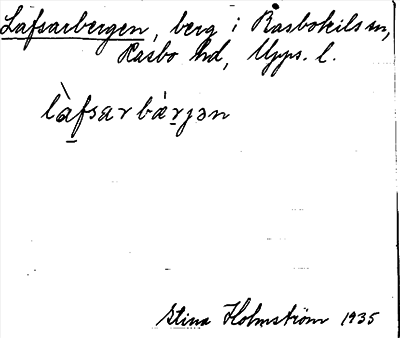 Lafsarbergen, berg i Rasbokils sn,
Rasbo hd, Upps. l.
là̱fsarbæ̀ṟjən
Stina Holmström 1935